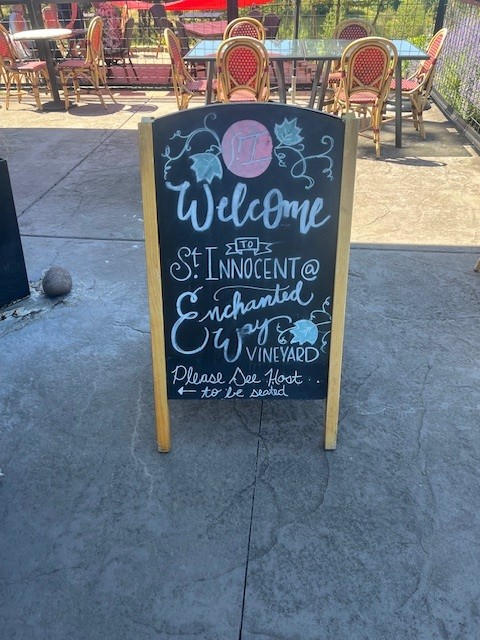 SI
Welcome
TO
St INNOCENT @
Enchanted
Way
VINEYARD
Please See Host...
← to be seated